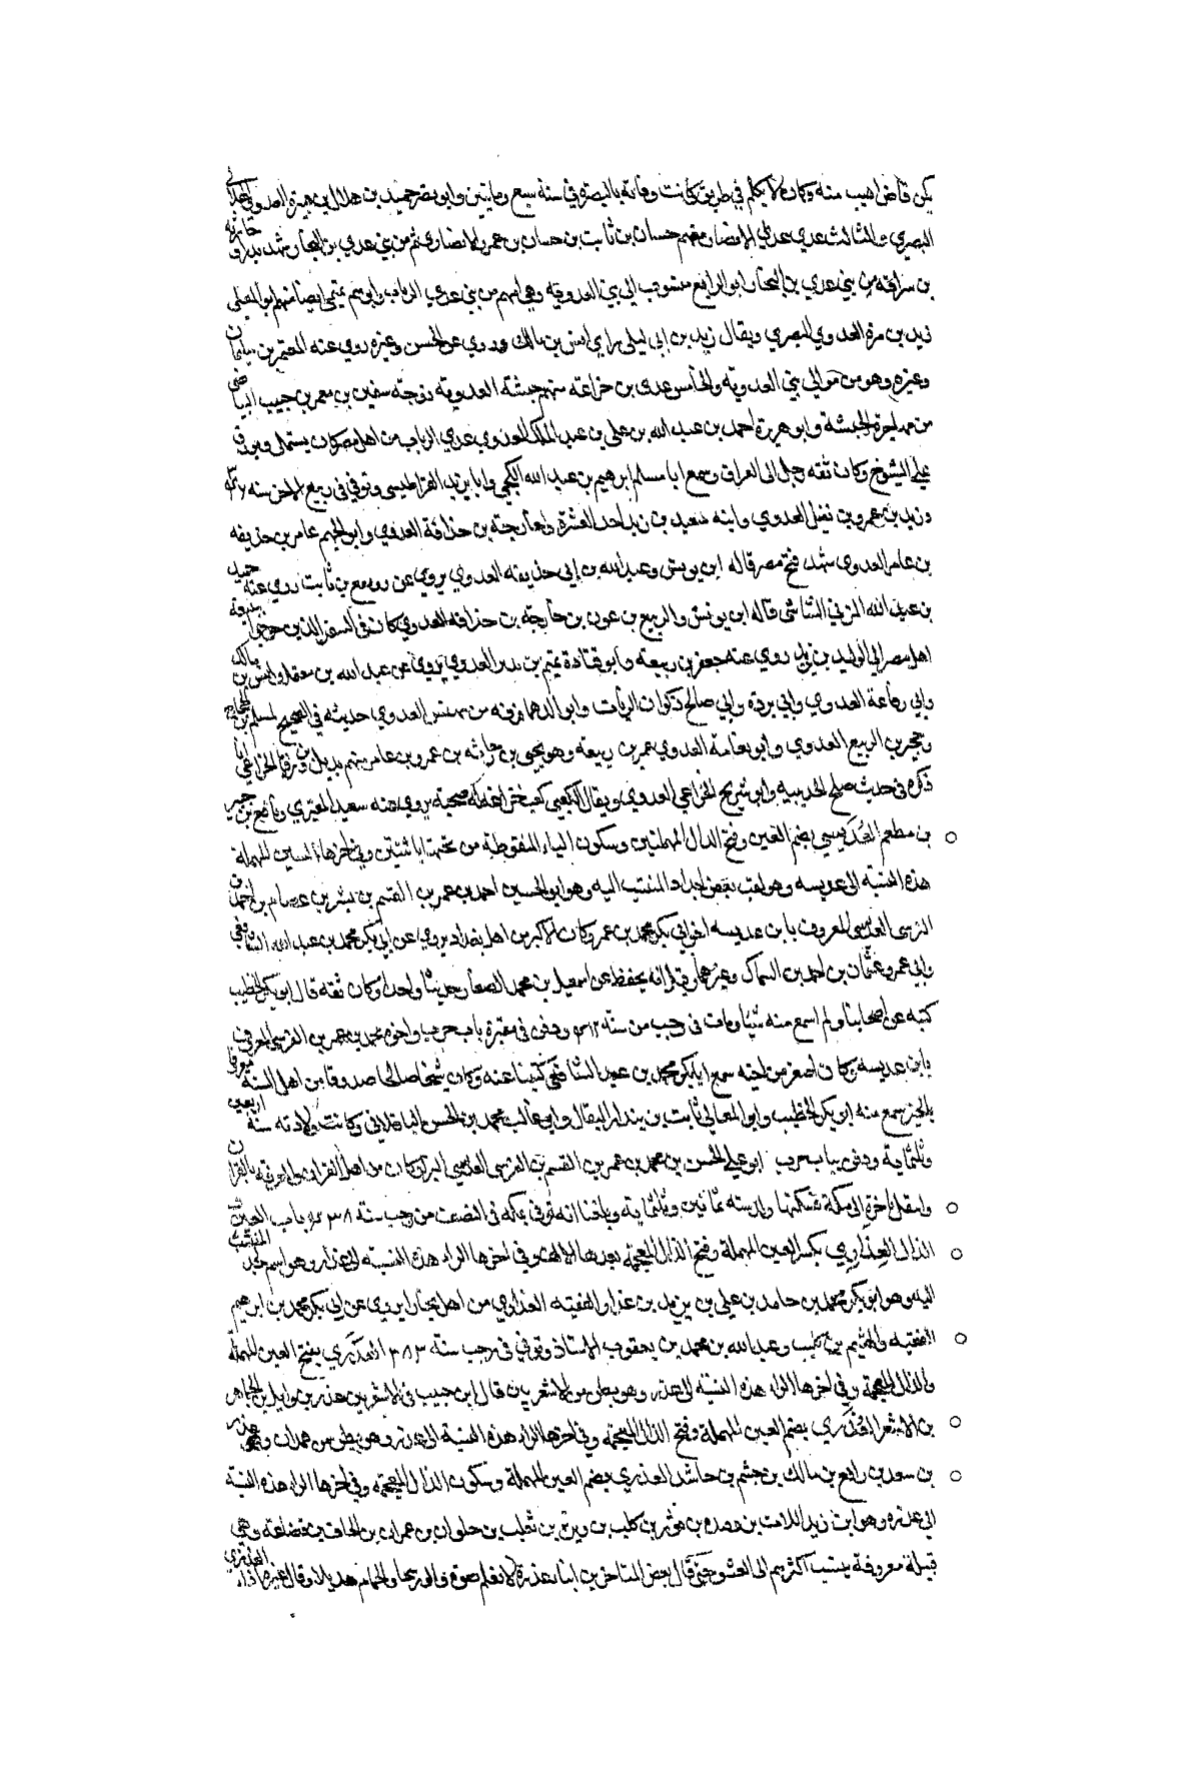 يكن قاض اهيب منه وكان لا يكلم في طريق كانت وفاته بالبصرة في سنة سبع ومايتين وابو نصر حميد بن هلال بن هبيرة العدوي
البصري والثالث عدي الانصار منهم حسان بن ثابت بن حسان بن عمرو الانصاري ثم من بني عدي بن النجار شهد بدرا حارثة
بن سراقة من بني عدي بن النجار ابو الرابع منسوب الى بني العدوية وهي امهم من بني عدي الرباب وابوهم تميمي ايضا منهم ابو المعلى
زيد بن مرة العدوي البصري ويقال زيد بن ابي ليلى راى انس بن مالك وروى عن الحسن وغيره روى عنه المعتمر بن سليمان
وغيره وهو من موالي بني العدوية والخامس عدي بن خزاعة منهم حبشية العدوية زوجة سفين بن معمر بن حبيب البياضي
من مهاجرة الحبشة وابو هريرة احمد بن عبد الله بن علي بن عبد الملك العدوي عدي الرباب من اهل مصر كان يستملي ويورق
على الشيوخ وكان ثقة رحل الى العراق وسمع ابا مسلم ابرهيم بن عبد الله الكجي وابا يزيد القراطيسي وتوفي في ربيع الاخر سنة
وزيد بن عمرو بن نفيل العدوي وابنه سعيد بن زيد احد العشرة وخارجة بن حذافة العدوي وابو الجهم عامر بن حذيفة
بن عامر العدوي شهد فتح مصر قاله ابن يونس وعبد الله بن ابي حذيفة العدوي يروي عن رويفع بن ثابت روى عنه حميد
بن عبد الله المزني الشاشي قاله ابن يونس والربيع بن عون بن خارجة بن حذافة العدوي كان في السفر الذين خرجوا ببيعة
اهل مصر الى الوليد بن يزيد روى عنه جعفر بن ربيعة وابو قتادة تميم بن نذير العدوي يروي عن عبد الله بن معقل وانس بن مالك
وابي رفاعة العدوي وابي بردة وابي صالح ذكوان الزيات وابو الدهماء قرفة بن بهيس العدوي حديثه في الصحيح لمسلم بن الحجاج
وحجير بن الربيع العدوي وابو نعامة العدوي عمرو بن ربيعة وهو يحيى بن حارثة بن عمرو بن عامر منهم بديل بن ورقا الخزاعي
ذكره في حديث صلح الحديبية وابو شريح الخزاعي العدوي ويقال الكعبي كعب خزاعة له صحبة يروي عنه سعيد المقبري ونافع بن جبير
بن مطعم العُدَيسي بضم العين وفتح الدال المهملتين وسكون الياء المنقوطة من تحتها باثنتين وفي اخرها السين المهملة
هذه النسبة الى عديسة وهو لقب بعض اجداد المنتسب اليه وهو ابو الحسين احمد بن عمر بن القسم بن بشر بن عصام بن احمد
النرسي العديسي المعروف بابن عديسة اخو ابي بكر محمد بن عمر وكان الاكبر من اهل بغداد يروي عن ابي بكر محمد بن عبد الله الشافعي
وابي عمرو عثمان بن احمد بن السماك وغيرهما وقيل انه يحفظ عن اسمعيل بن محمد الصفار حديثا واحدا وكان ثقة قال ابو بكر الخطيب
كتبه عن اصحابنا ولم اسمع منه شيئا ومات في رجب من سنة ودفن في مقبرة باب حرب واخوه محمد بن عمر بن النرسي المعروف
بابن عديسة وكان اصغر من اخيه سمع ابا بكر محمد بن عبد الله الشافعي كتبنا عنه وكان شيخا صالحا صدوقا من اهل السنة معروفا
بالخير سمع منه ابو بكر الخطيب وابو المعالي ثابت بن بندار البقال وابو غالب محمد بن الحسن الباقلاني وكانت ولادته سنة اربعين
وثلثماية ودفن بباب حرب ابو علي الحسن بن محمد بن عمر بن القسم بن النرسي العديسي البزاز كان من اهل القران والمعرفة بالقران
وانتقل باخرة الى مكة فسكنها ولد سنة ثمانين وثلثماية وبلغنا انه توفي بمكة في النصف من رجب سنة باب العين
الذال العِذَاري بكسر العين المهملة وفتح الذال المعجمة بعدها الالف وفي اخرها الراء هذه النسبة الى عذار وهو اسم لجد المنتسب
اليه وهو ابو بكر محمد بن حامد بن علي بن يزيد بن عذار الفقيه العذاري من اهل بخارا يروي عن ابي بكر محمد بن ابرهيم
الفقيه والهيثم بن كليب وعبد الله بن محمد بن يعقوب الاستاذ وتوفي في رجب سنة ٣٨٣ العَذَري بفتح العين المهملة
والذال المعجمة وفي اخرها الراء هذه النسبة الى عذر وهو بطن من الاشعريين قال ابن حبيب في الاشعريين عذر بن وايل بن الجماهر
بن الاشعر العُذَري بضم العين المهملة وفتح الذال المعجمة وفي اخرها الراء هذه النسبة الى عذر وهو بطن من همدان وهو عذر
بن سعد بن رافع بن مالك بن جشم بن حاشد العذري بضم العين المهملة وسكون الذال المعجمة وفي اخرها الراء هذه النسبة
الى عذرة وهو ابن زيد اللات بن رفيدة بن ثور بن كلب بن وبرة بن تغلب بن حلوان بن عمران بن الحاف بن قضاعة وهي
قبيلة معروفة ينسب اكثرهم الى العشق حتى قال بعض المتاخرين